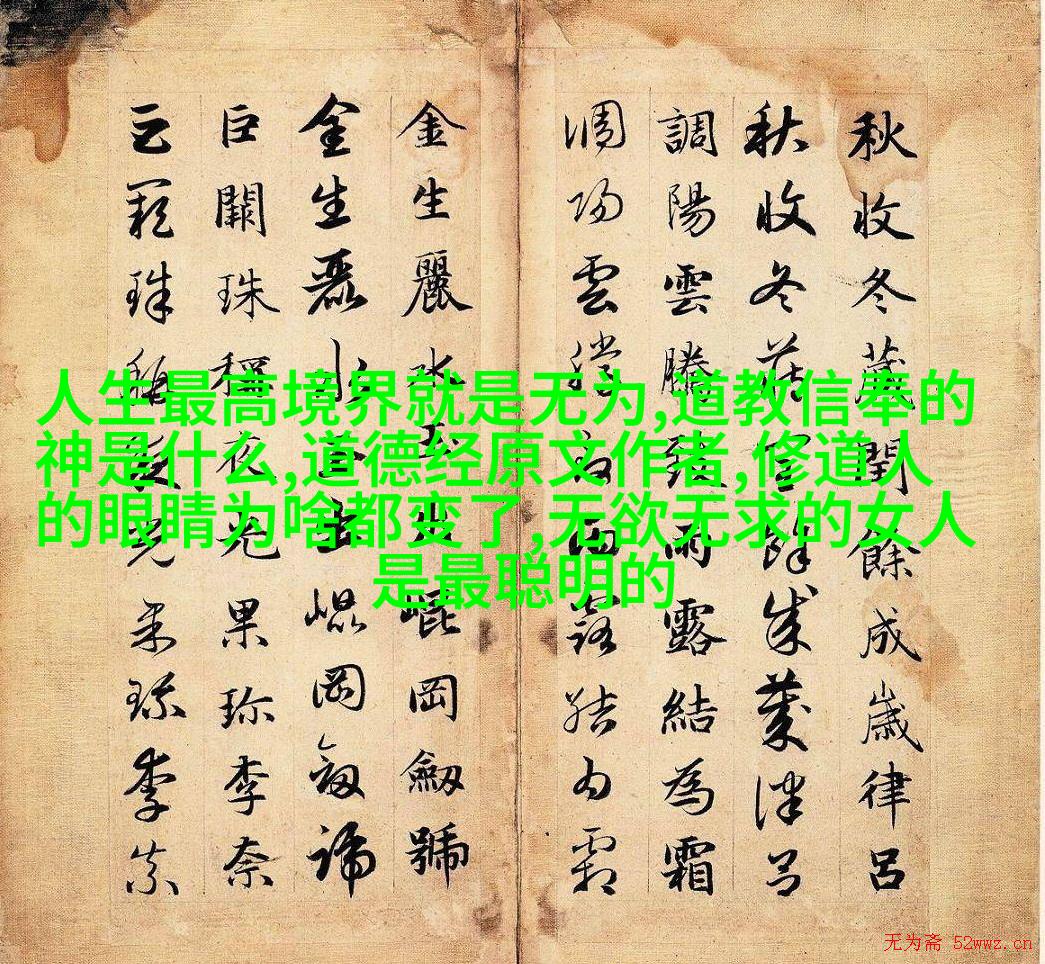 秋收冬藏閏餘成歲律呂
秋收冬藏閏餘成歲律呂
調陽雲騰致雨露結為霜
調陽雲騰致雨露結為霜
金生麗水玉出崐岡劒號
金生麗水玉出崐岡劒號
巨闕珠稱夜光果珍李柰
巨闕珠稱夜光果珍李柰
人生最高境界就是无为,道教信奉的
神是什么,道德经原文作者,修道人
的眼睛为啥都变了,无欲无求的女人
是最聪明的
无为斋 52wwz.cn